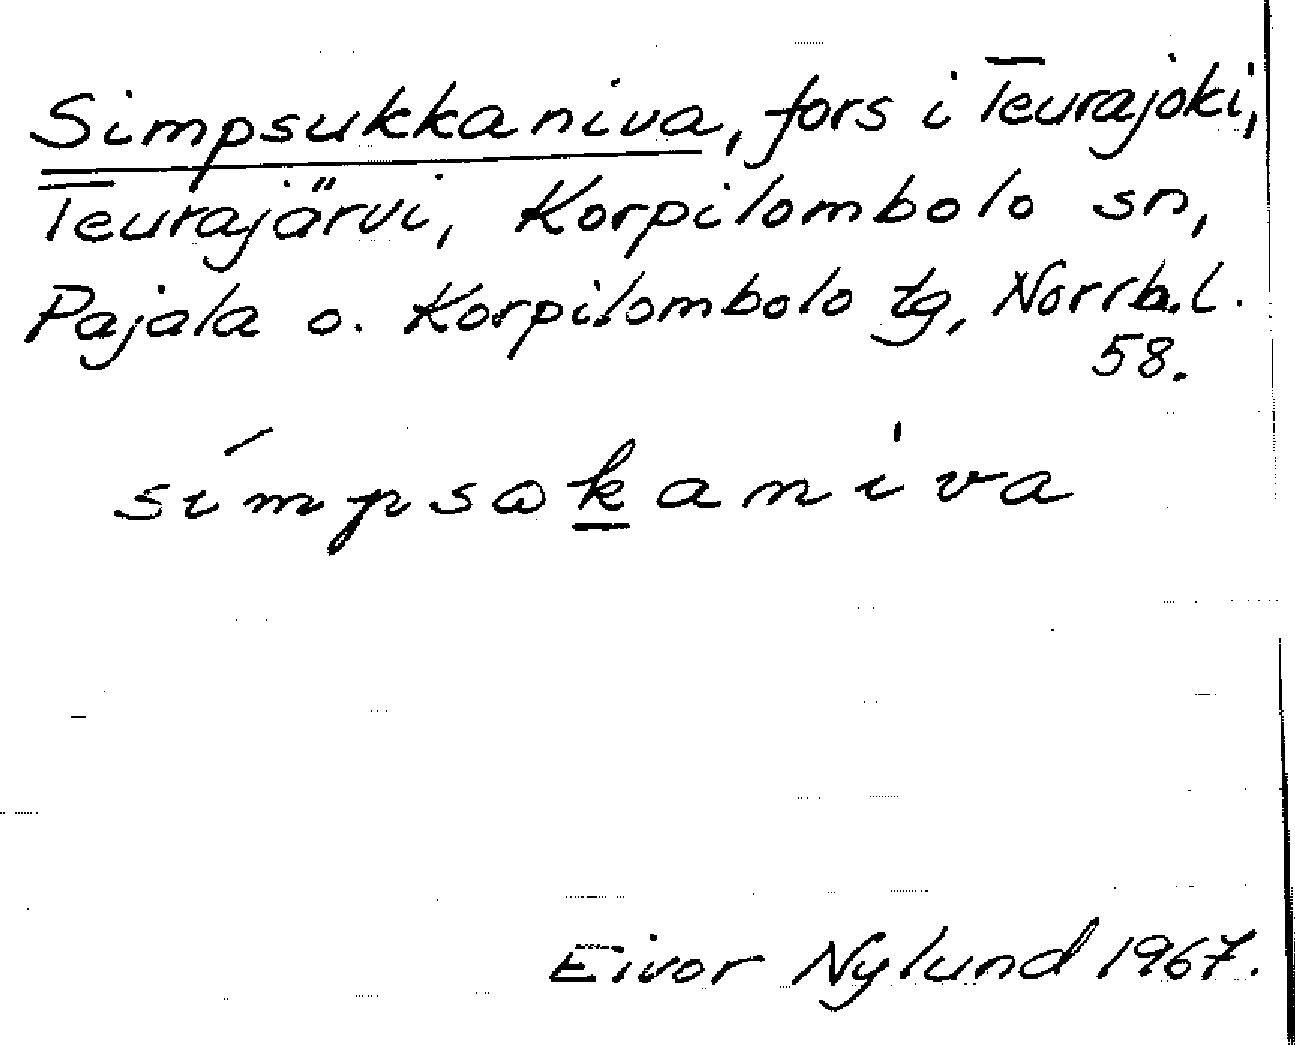 Simpsukkaniva, fors i Teurajoki,
Teurajärvi, Korpilombolo sn,
Pajala o. Korpilombolo tg, Norrb.l.
58.
símpsωkaniva
Eivor Nylund 1967.